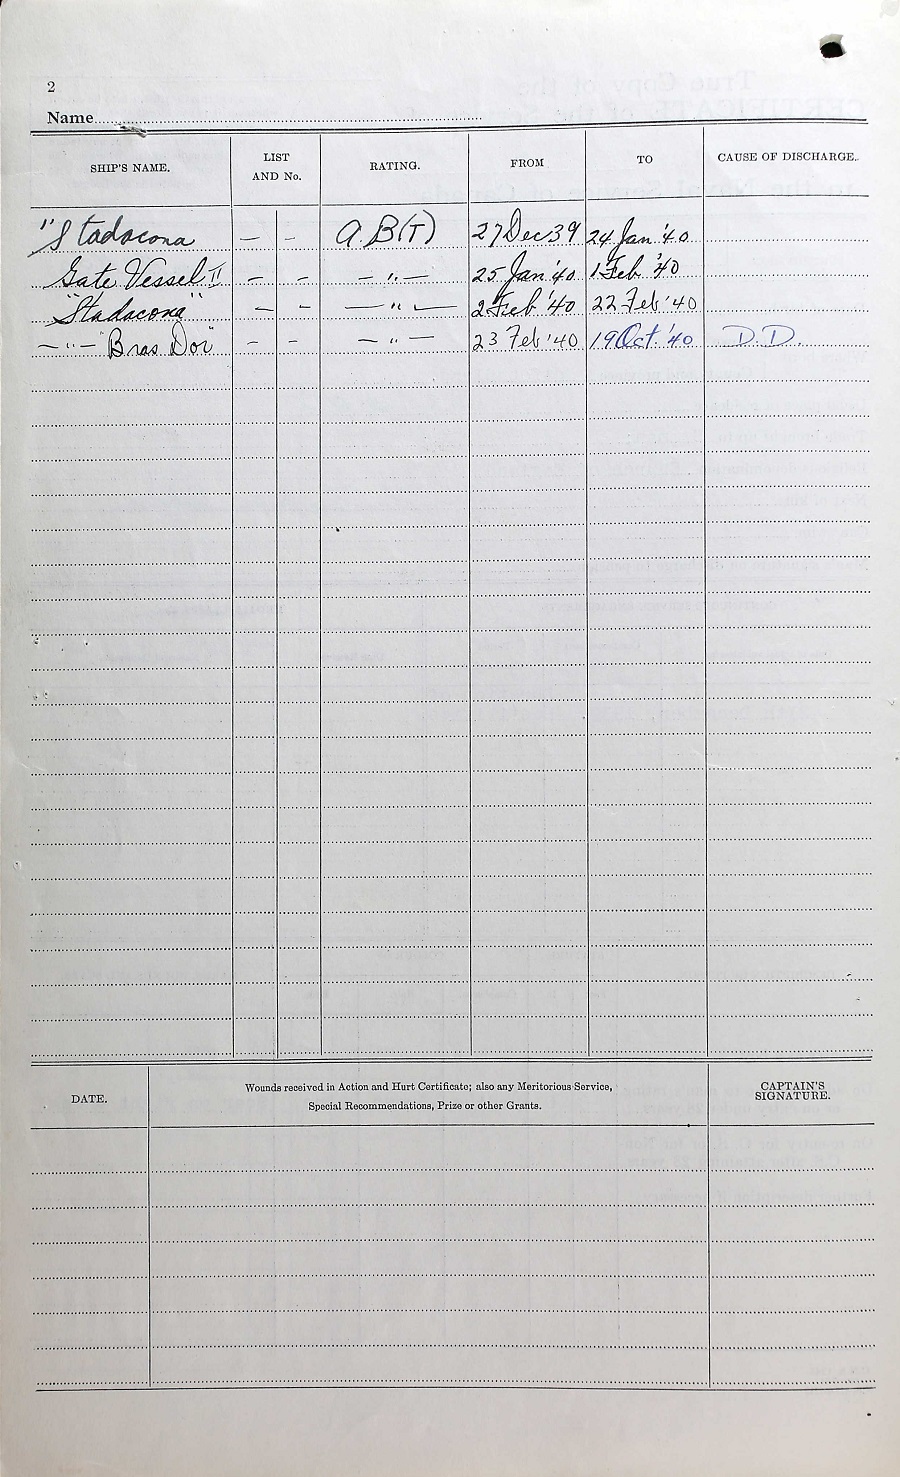 2
Name
SHIP'S NAME. LIST AND No. RATING. FROM TO CAUSE OF DISCHARGE.
"Stadacona — — A.B(T) 27 Dec 39 24 Jan '40
Gate Vessel II — — — " — 25 Jan '40 1 Feb '40
"Stadacona" — — — " — 2 Feb '40 22 Feb '40
— " — "Bras Dor" — — — " — 23 Feb '40 19 Oct. '40 D.D.
DATE. Wounds received in Action and Hurt Certificate; also any Meritorious Service, Special Recommendations, Prize or other Grants. CAPTAIN'S SIGNATURE.